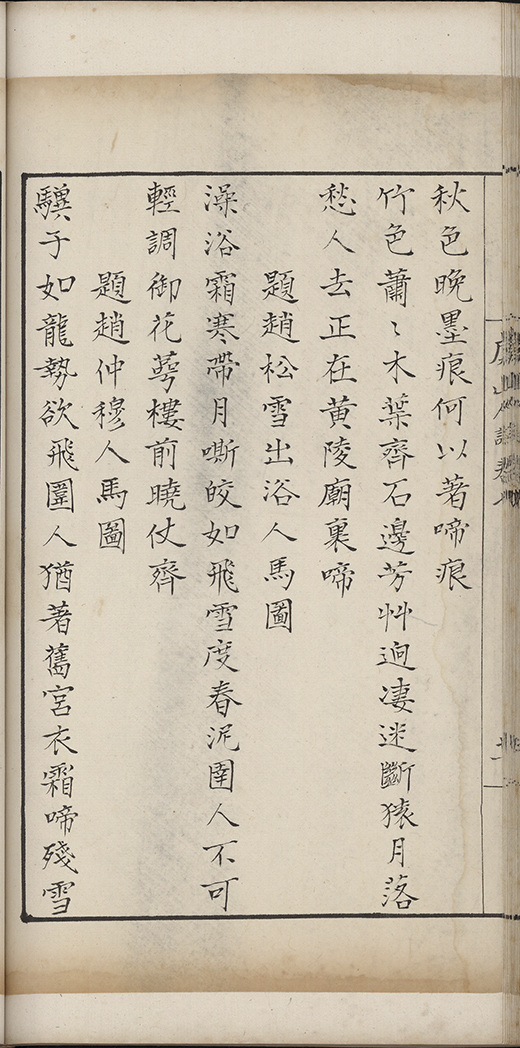 秋色晚墨痕何以著啼痕
竹色蕭〻木葉齊石邊芳艸逈凄迷斷猿月落
愁人去正在黄陵廟裏啼
題趙松雪出浴人馬圖
澡浴霜寒帶月嘶皎如飛雪度春泥圉人不可
輕調御花萼樓前曉仗齊
題趙仲穆人馬圖
驥子如龍勢欲飛圉人猶著舊宮衣霜啼殘雪